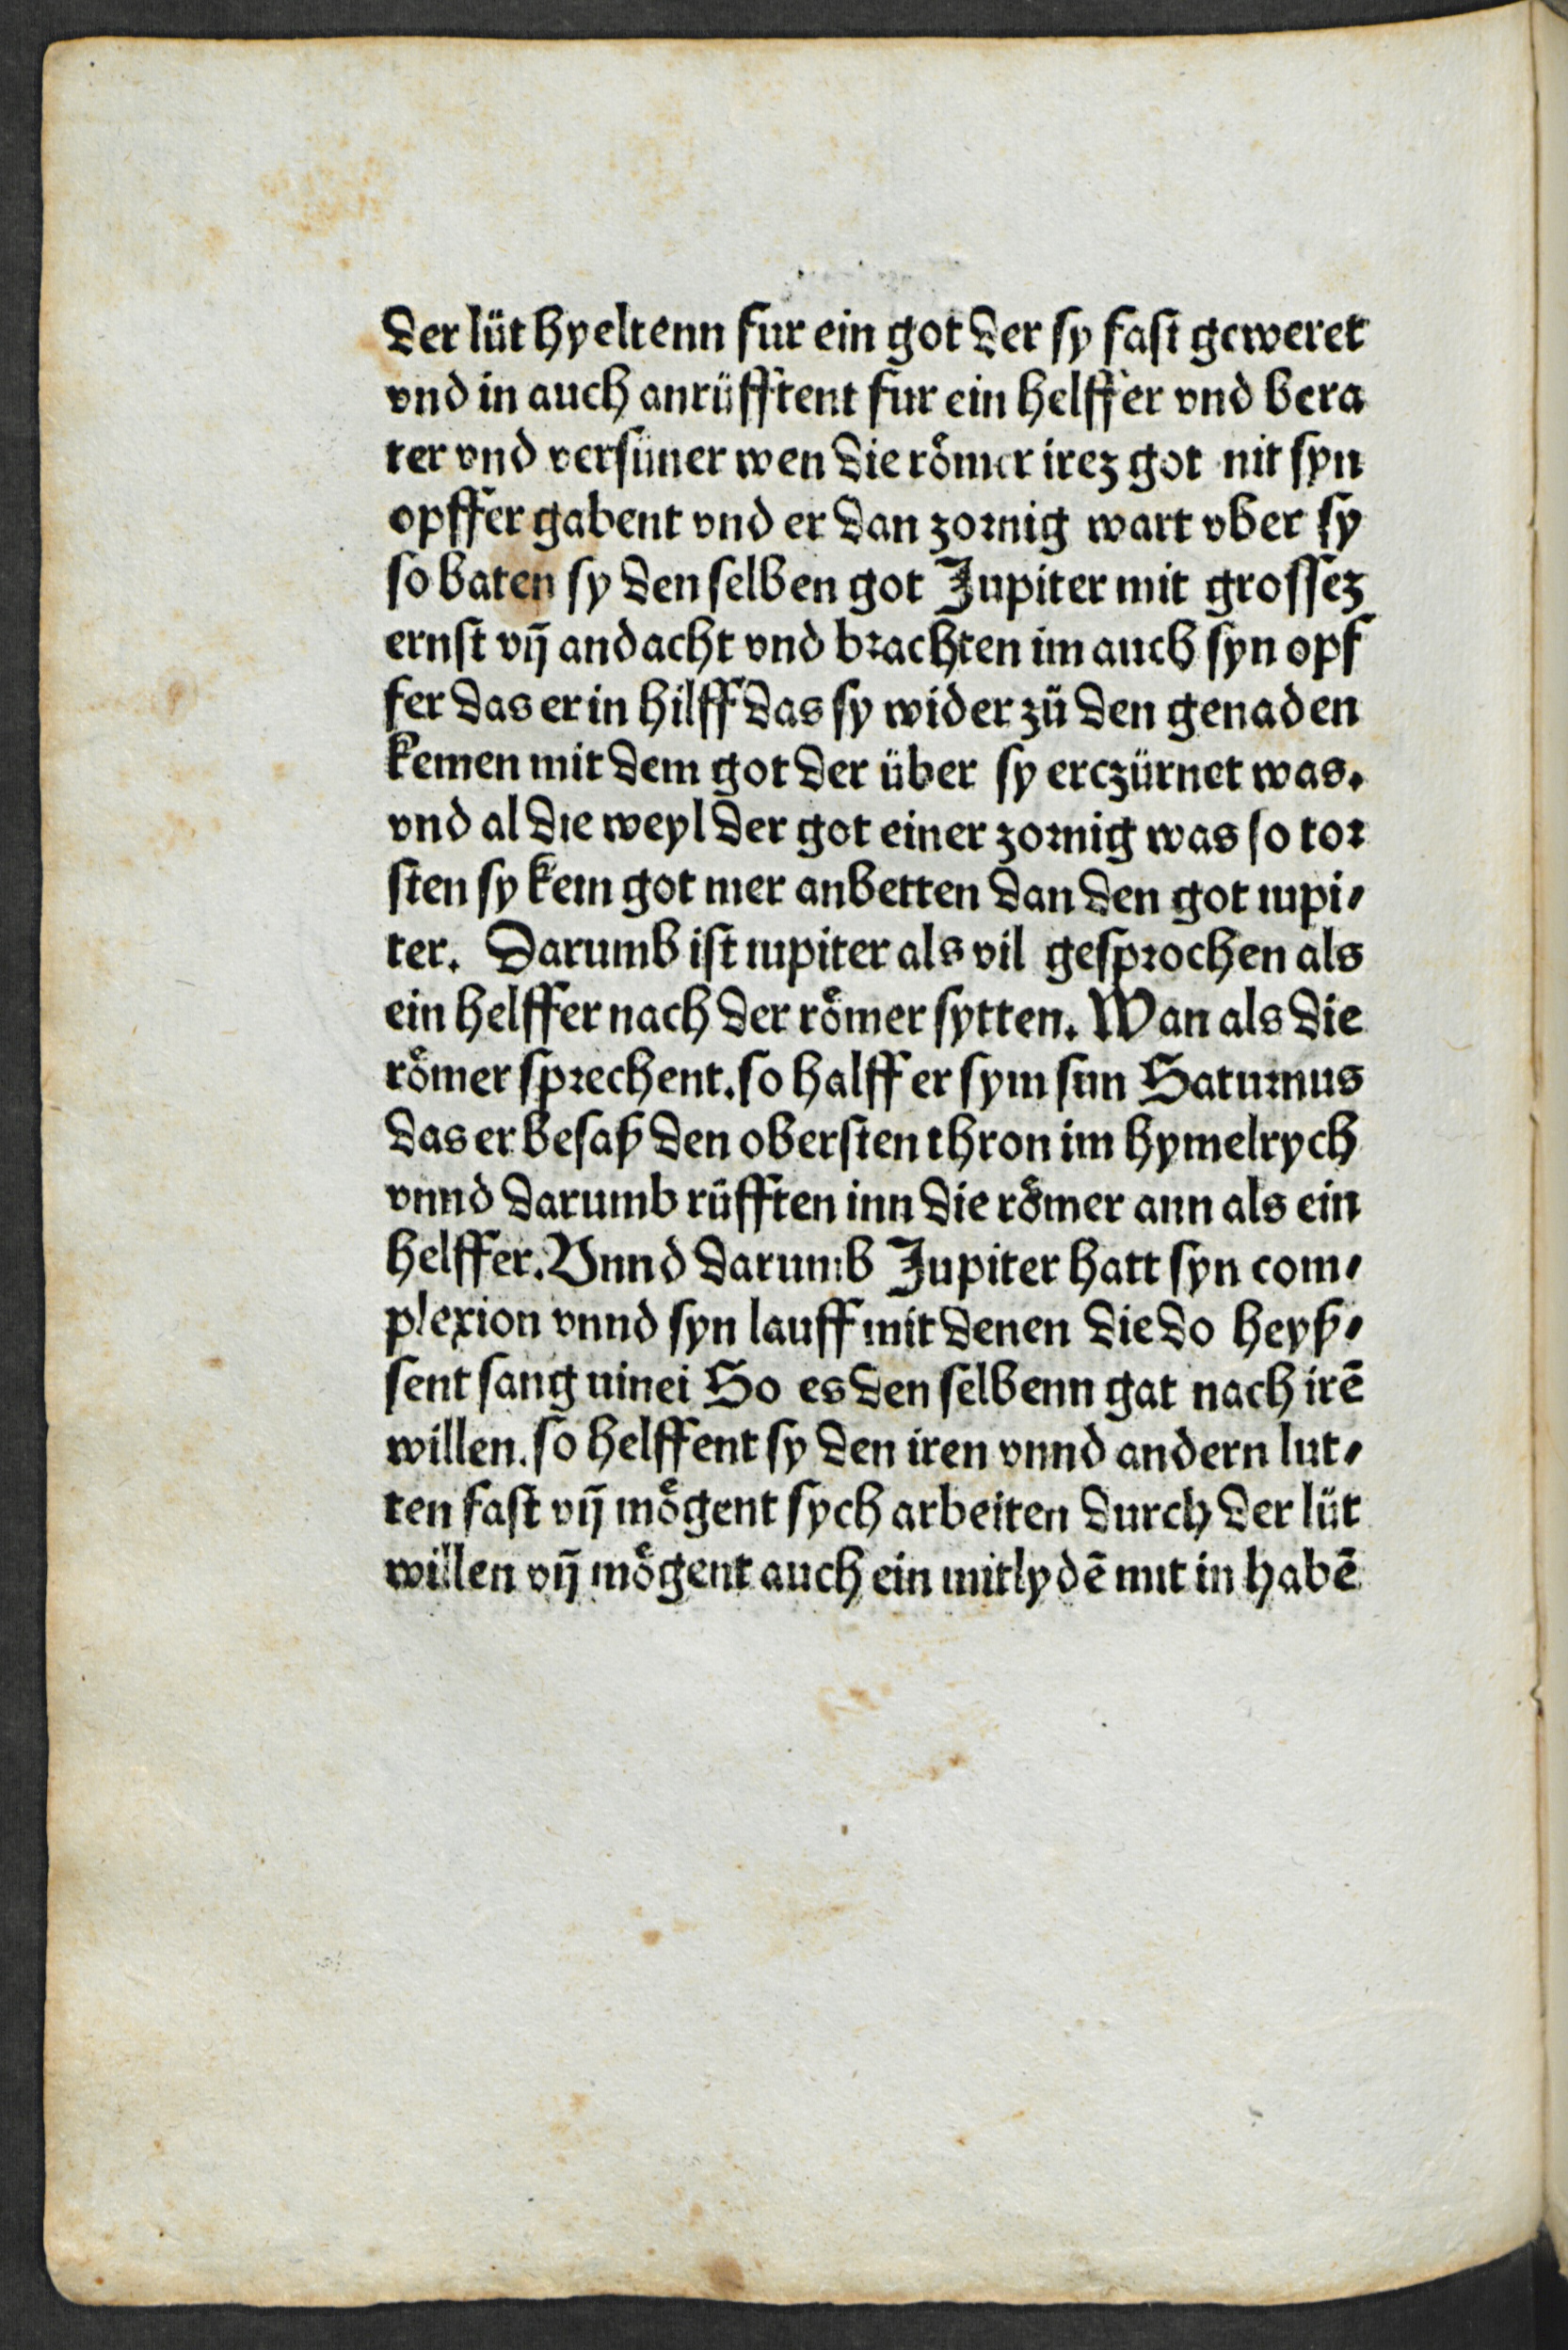 der lüt hyeltenn fur ein got der sy fast geweret
vnd in auch anrüfftent fur ein helffer vnd bera
ter vnd versüner wen die römer irez got nit syn
opffer gabent vnd er dan zornig wart vber sy
so baten sy den selben got Jupiter mit grossez
ernst vn̄ andacht vnd brachten im auch syn opf
fer das er in hilff das sy wider zů den genaden
kemen mit dem got der über sy erczürnet was.
vnd al die weyl der got einer zornig was so tor
sten sy kein got mer anbetten dan den got iupi⸗
ter. Darumb ist iupiter als vil gesprochen als
ein helffer nach der römer sytten. Wan als die
römer sprechent. so halff er sym sun Saturnus
das er besaß den obersten thron im hymelrych
vnnd darumb rüfften inn die römer ann als ein
helffer. Vnnd darumb Jupiter hatt syn com⸗
plexion vnnd syn lauff mit denen die do heyß⸗
sent sanguinei So es den selbenn gat nach irē
willen. so helffent sy den iren vnnd andern lut⸗
ten fast vn̄ mögent sych arbeiten durch der lüt
willen vn̄ mögent auch ein mitlydē mit in habē